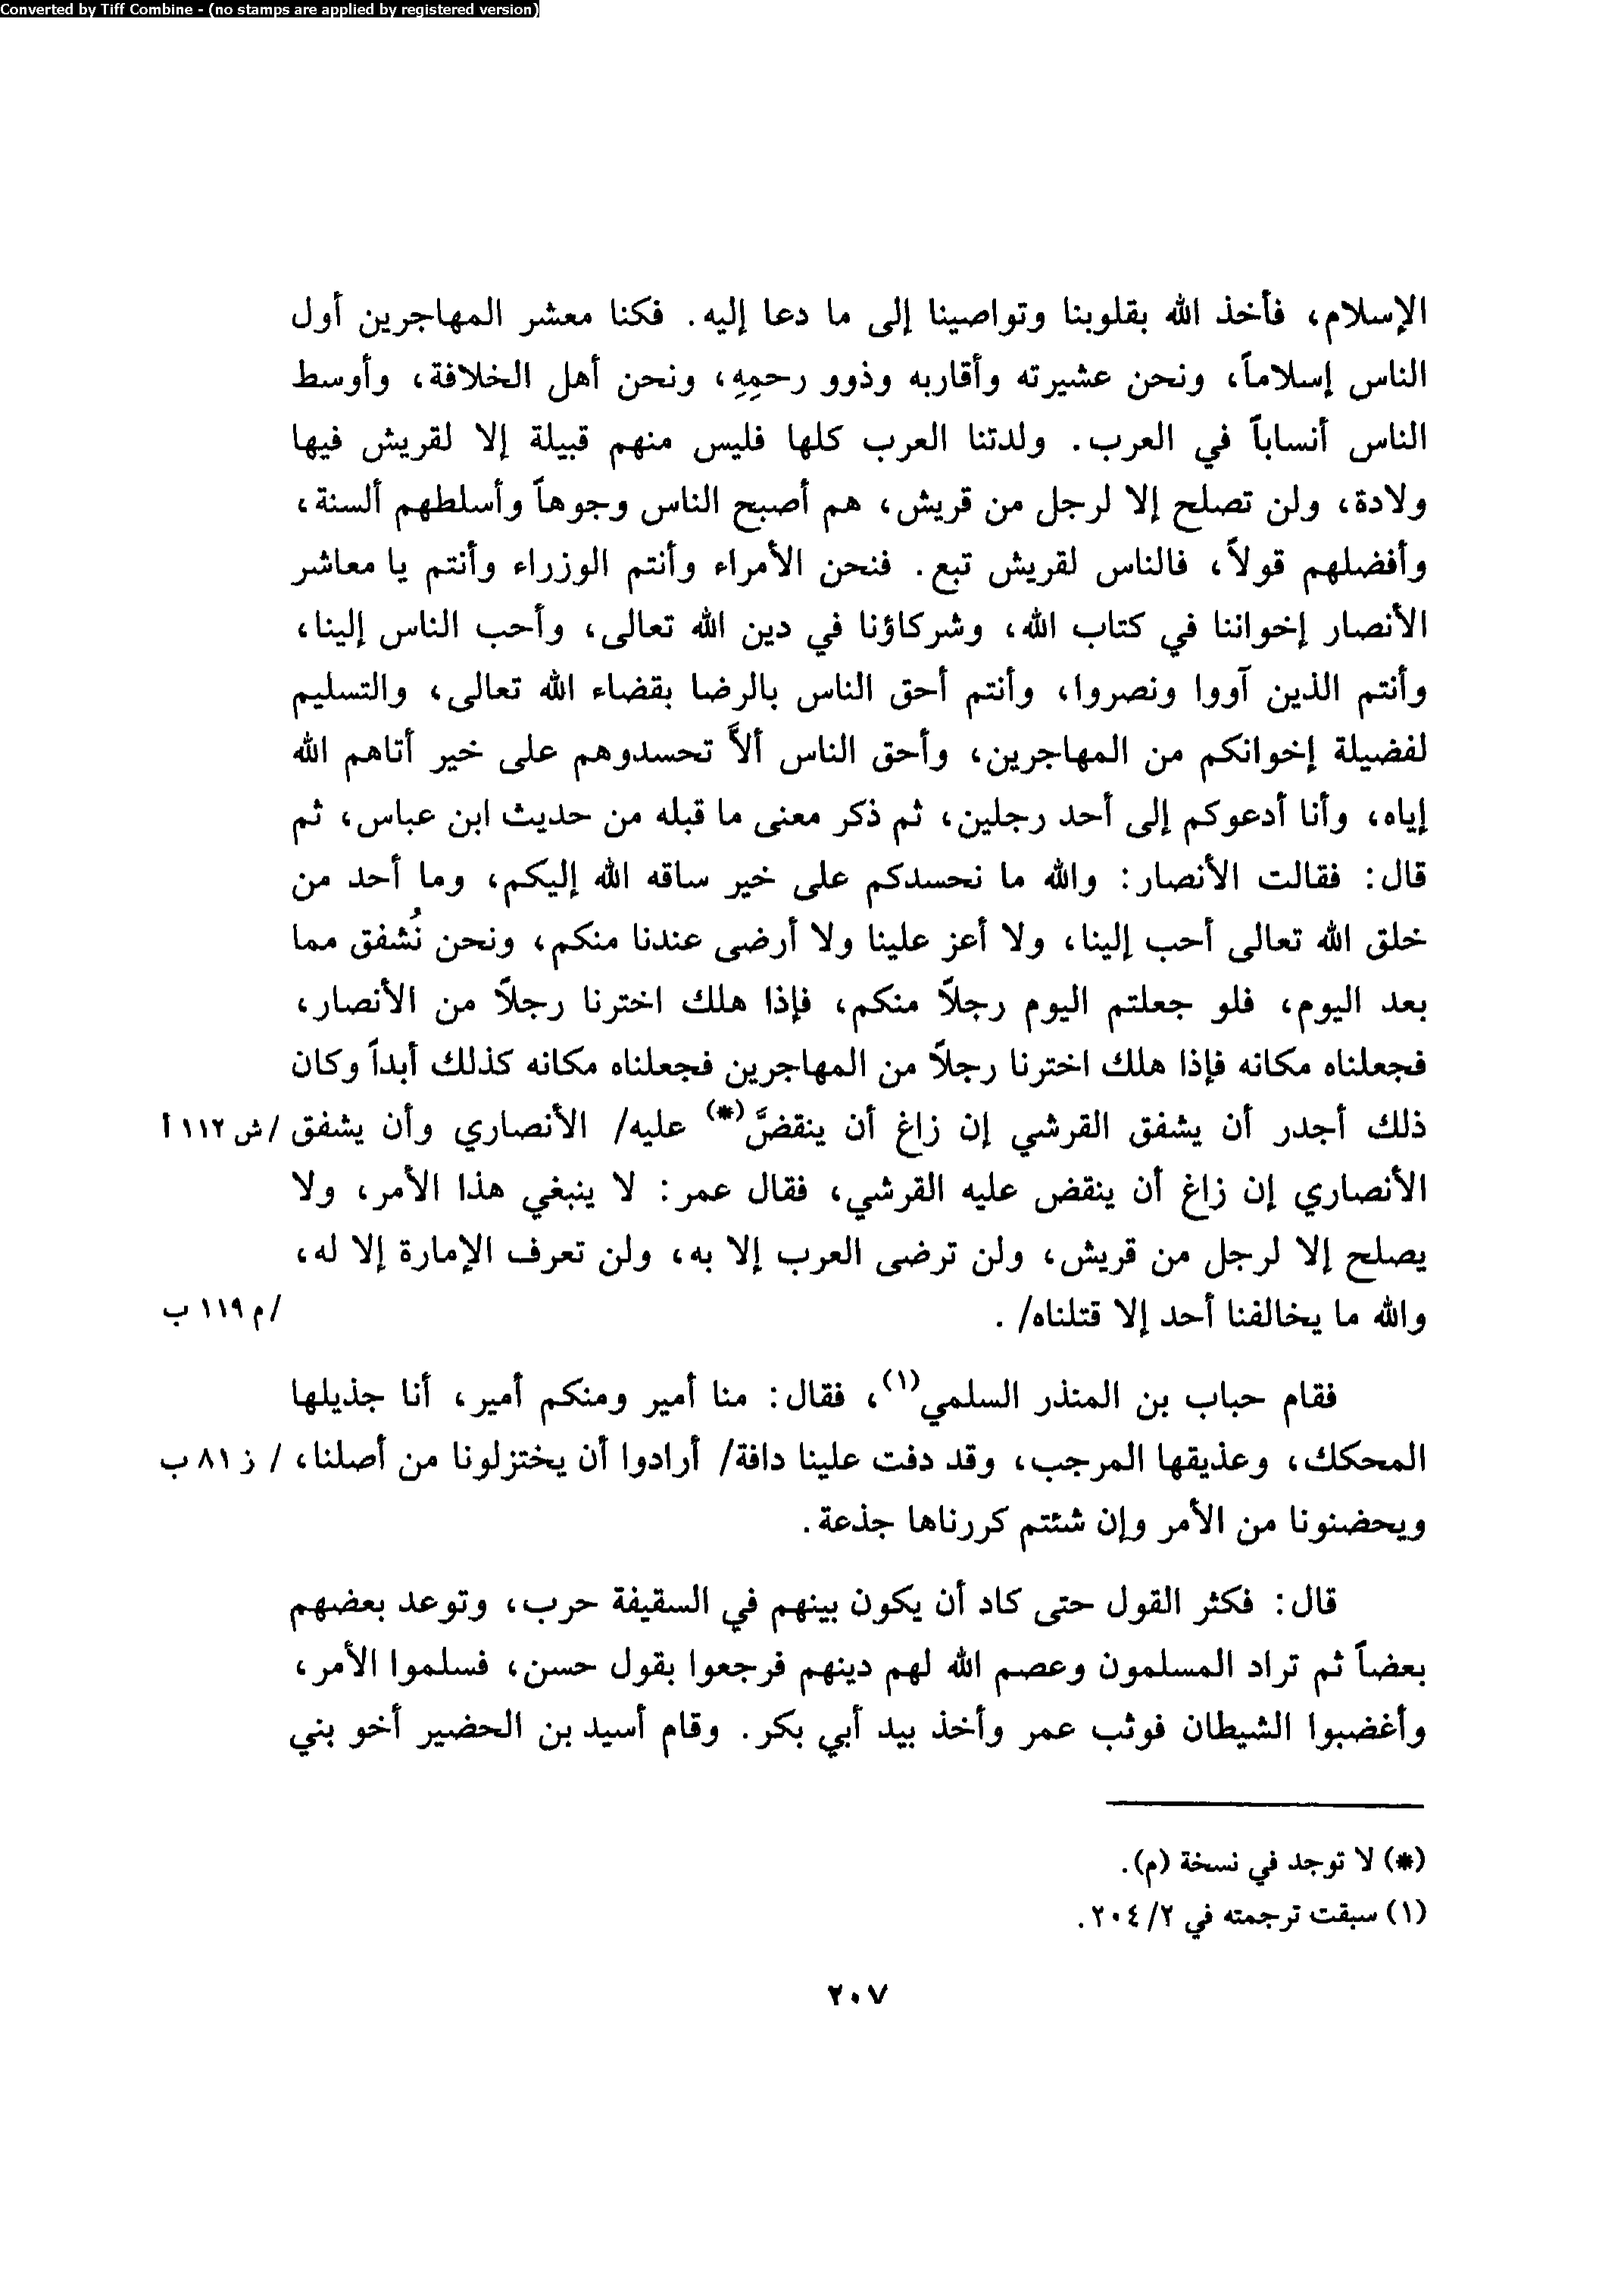 Converted by Tiff Combine - (no stamps are applied by registered version)
الإسلام، فأخذ الله بقلوبنا وتواصينا إلى ما دعا إليه. فكنا معشر المهاجرين أول
الناس إسلاماً، ونحن عشيرته وأقاربه وذوو رحمِهِ، ونحن أهل الخلافة، وأوسط
الناس أنساباً في العرب. ولدتنا العرب كلها فليس منهم قبيلة إلا لقريش فيها
ولادة، ولن تصلح إلا لرجل من قريش، هم أصبح الناس وجوهاً وأسلطهم ألسنة،
وأفضلهم قولاً، فالناس لقريش تبع. فنحن الأمراء وأنتم الوزراء وأنتم يا معاشر
الأنصار إخواننا في كتاب الله، وشركاؤنا في دين الله تعالى، وأحب الناس إلينا،
وأنتم الذين آووا ونصروا، وأنتم أحق الناس بالرضا بقضاء الله تعالى، والتسليم
لفضيلة إخوانكم من المهاجرين، وأحق الناس ألاَّ تحسدوهم على خير أتاهم الله
إياه، وأنا أدعوكم إلى أحد رجلين، ثم ذكر معنى ما قبله من حديث ابن عباس، ثم
قال: فقالت الأنصار: والله ما نحسدكم على خير ساقه الله إليكم، وما أحد من
خلق الله تعالى أحب إلينا، ولا أعز علينا ولا أرضى عندنا منكم، ونحن نُشفق مما
بعد اليوم، فلو جعلتم اليوم رجلاً منكم، فإذا هلك اخترنا رجلاً من الأنصار،
فجعلناه مكانه فإذا هلك اخترنا رجلاً من المهاجرين فجعلناه مكانه كذلك أبداً وكان
ذلك أجدر أن يشفق القرشي إن زاغ أن ينقضَّ(*) عليه/ الأنصاري وأن يشفق /ش ١١٢ أ
الأنصاري إن زاغ أن ينقض عليه القرشي، فقال عمر: لا ينبغي هذا الأمر، ولا
يصلح إلا لرجل من قريش، ولن ترضى العرب إلا به، ولن تعرف الإمارة إلا له،
والله ما يخالفنا أحد إلا قتلناه/ . /م ١١٩ ب
فقام حباب بن المنذر السلمي(١)، فقال: منا أمير ومنكم أمير، أنا جذيلها
المحكك، وعذيقها المرجب، وقد دفت علينا دافة/ أرادوا أن يختزلونا من أصلنا، / ز ٨١ ب
ويحضنونا من الأمر وإن شئتم كررناها جذعة.
قال: فكثر القول حتى كاد أن يكون بينهم في السقيفة حرب، وتوعد بعضهم
بعضاً ثم تراد المسلمون وعصم الله لهم دينهم فرجعوا بقول حسن، فسلموا الأمر،
وأغضبوا الشيطان فوثب عمر وأخذ بيد أبي بكر. وقام أسيد بن الحضير أخو بني
(*) لا توجد في نسخة (م).
(١) سبقت ترجمته في ٢/ ٢٠٤.
٢٠٧